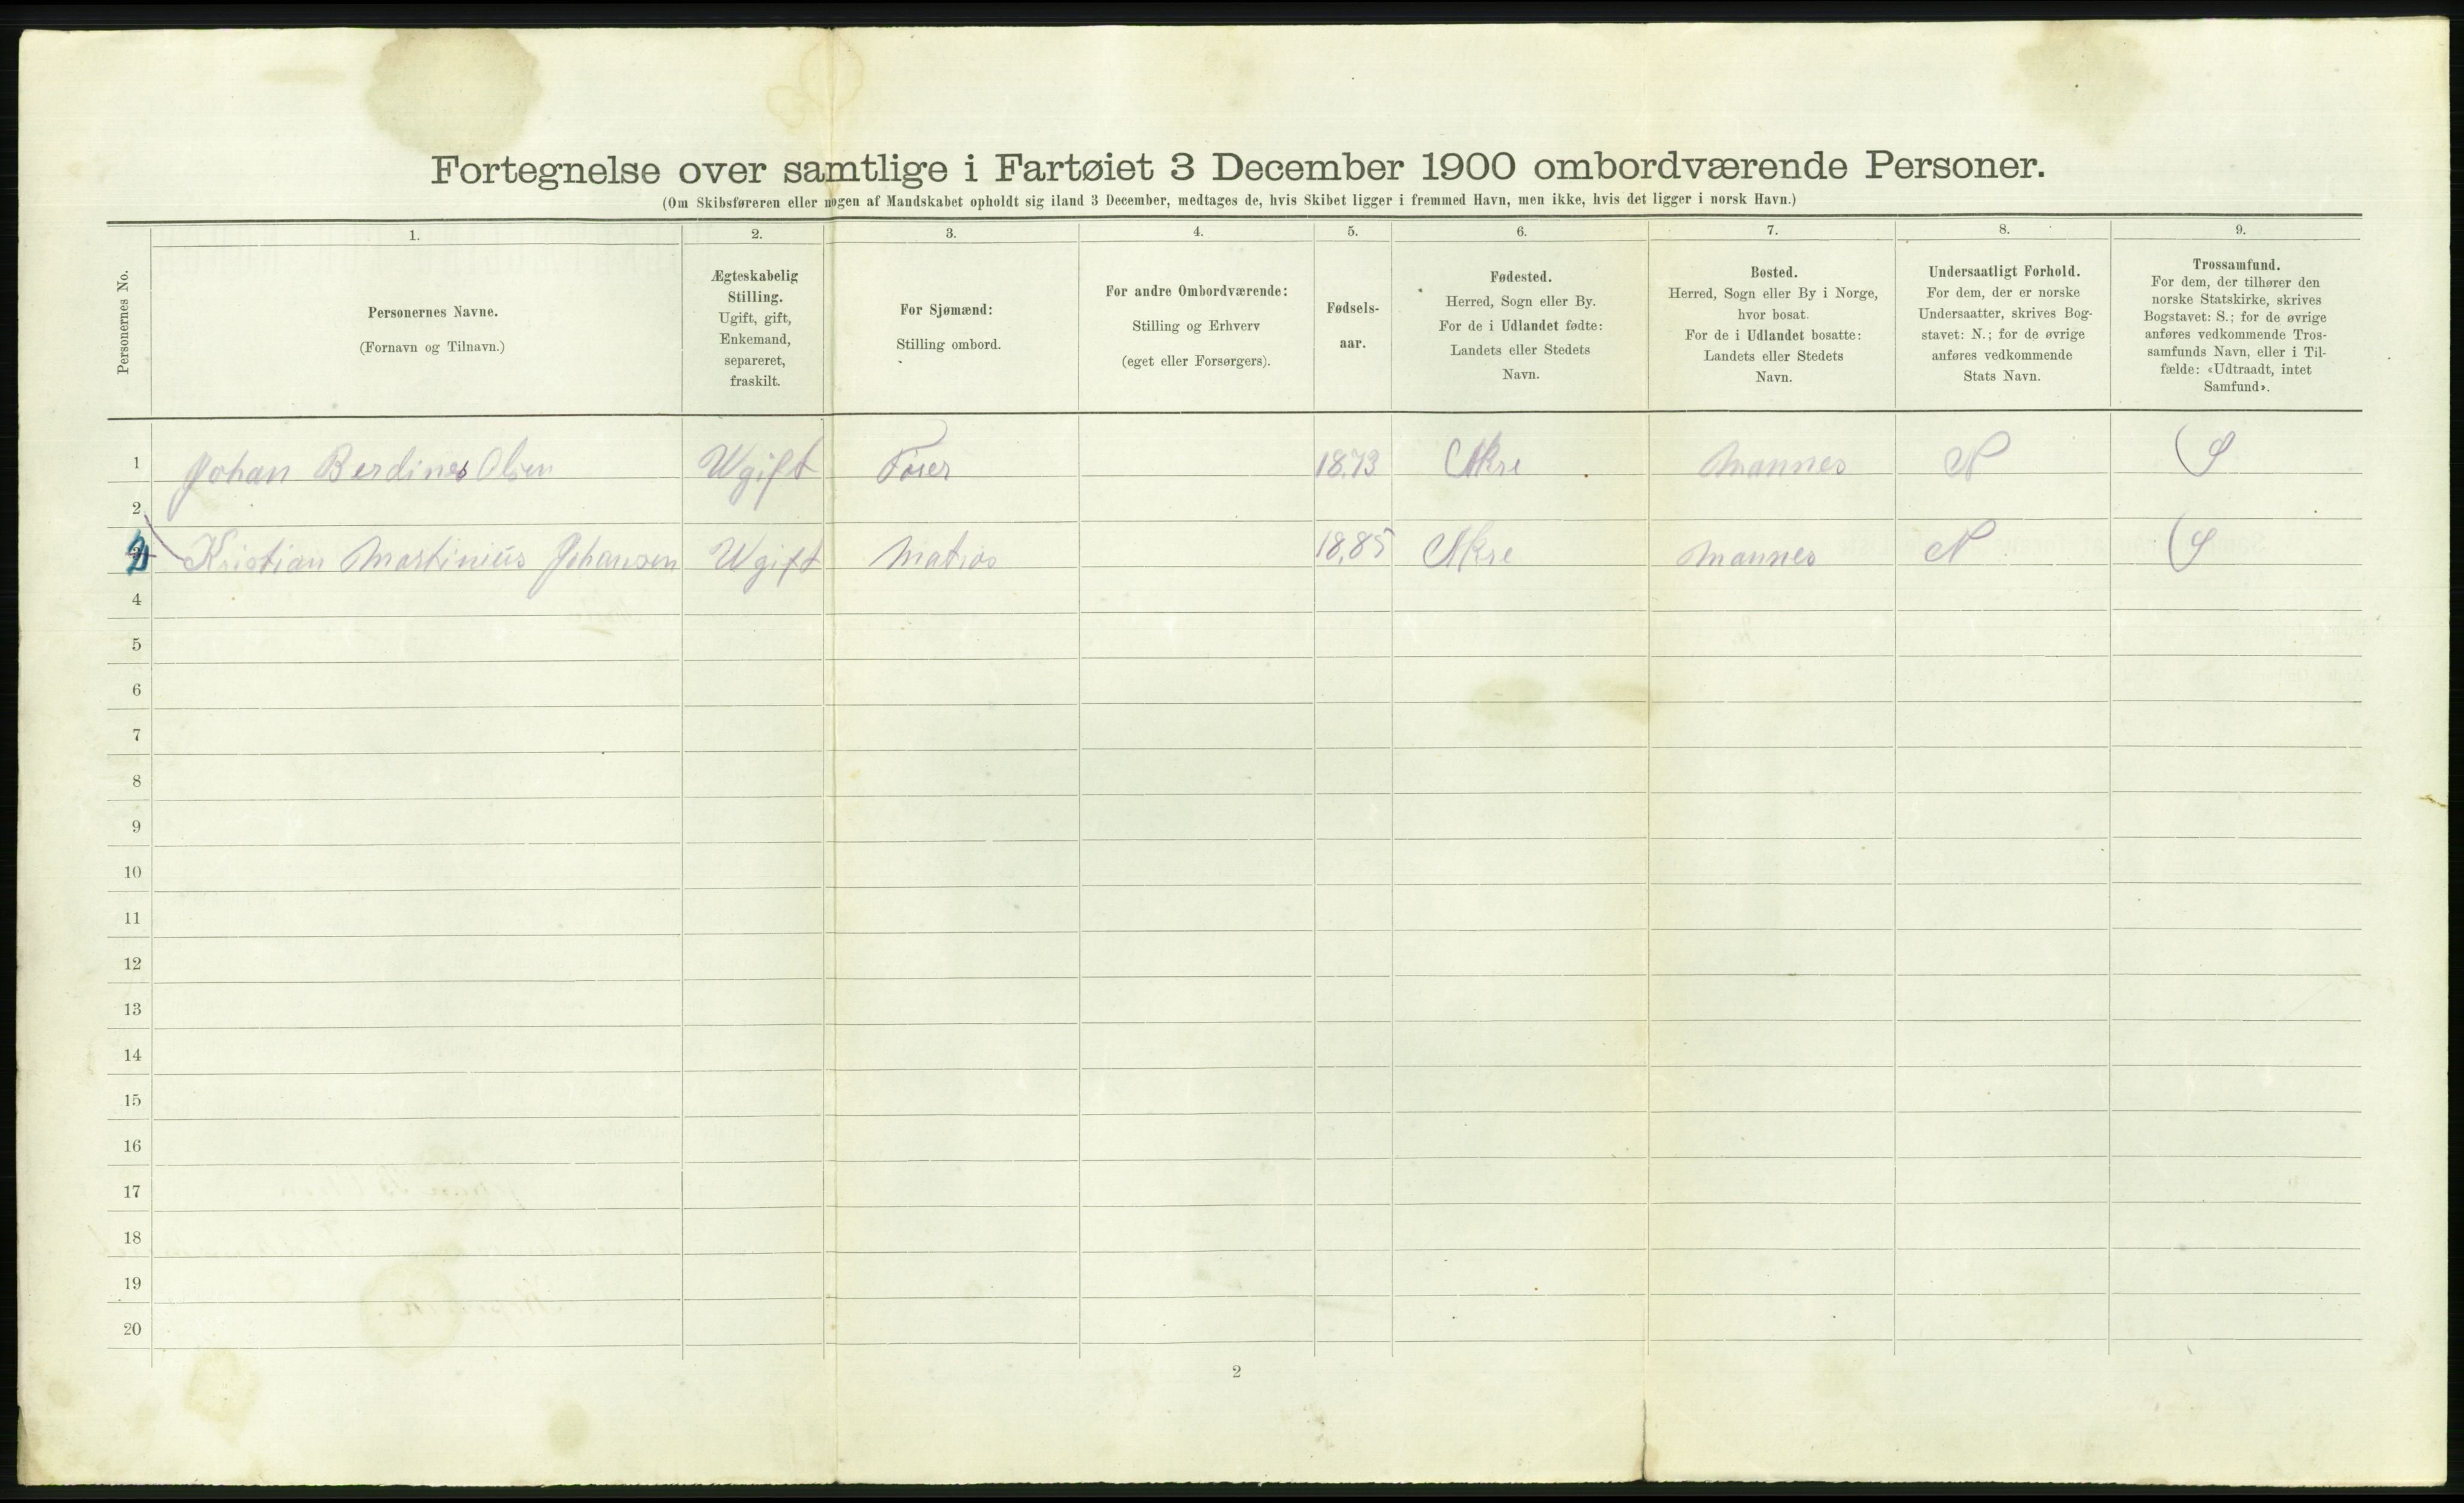 Fortegnelse over samtlige i Fartøiet 3 December 1900 ombordværende Personer.
(Om Skibsføreren eller nogen af Mandskabet opholdt sig iland 3 December, medtages de, hvis Skibet ligger i fremmed Havn, men ikke, hvis det ligger i norsk Havn.)
Personernes No.
1.
Personernes Navne.
(Fornavn og Tilnavn.)
2.
Ægteskabelig
Stilling.
Ugift, gift,
Enkemand,
separeret,
fraskilt.
3.
For Sjømænd:
Stilling ombord.
4.
For andre Ombordværende:
Stilling og Erhverv
(eget eller Forsørgers).
5.
Fødsels-
aar.
6.
Fødested.
Herred, Sogn eller By.
For de i Udlandet fødte:
Landets eller Stedets
Navn.
7.
Bosted.
Herred, Sogn eller By i Norge,
hvor bosat.
For de i Udlandet bosatte:
Landets eller Stedets
Navn.
8.
Undersaatligt Forhold.
For dem, der er norske
Undersaatter, skrives Bog-
stavet: N.; for de øvrige
anføres vedkommende
Stats Navn.
9.
Trossamfund.
For dem, der tilhører den
norske Statskirke, skrives
Bogstavet: S.; for de øvrige
anføres vedkommende Tros-
samfunds Navn, eller i Til-
fælde: «Udtraadt, intet
Samfund».
1 Johan Berdines Olsen Ugift Fører 18,73 Akre Mannes N S
2
2 Kristian Martinius Johansen Ugift Matros 18,85 Akre Mannes N S
4
5
6
7
8
9
10
11
12
13
14
15
16
17
18
19
20
2